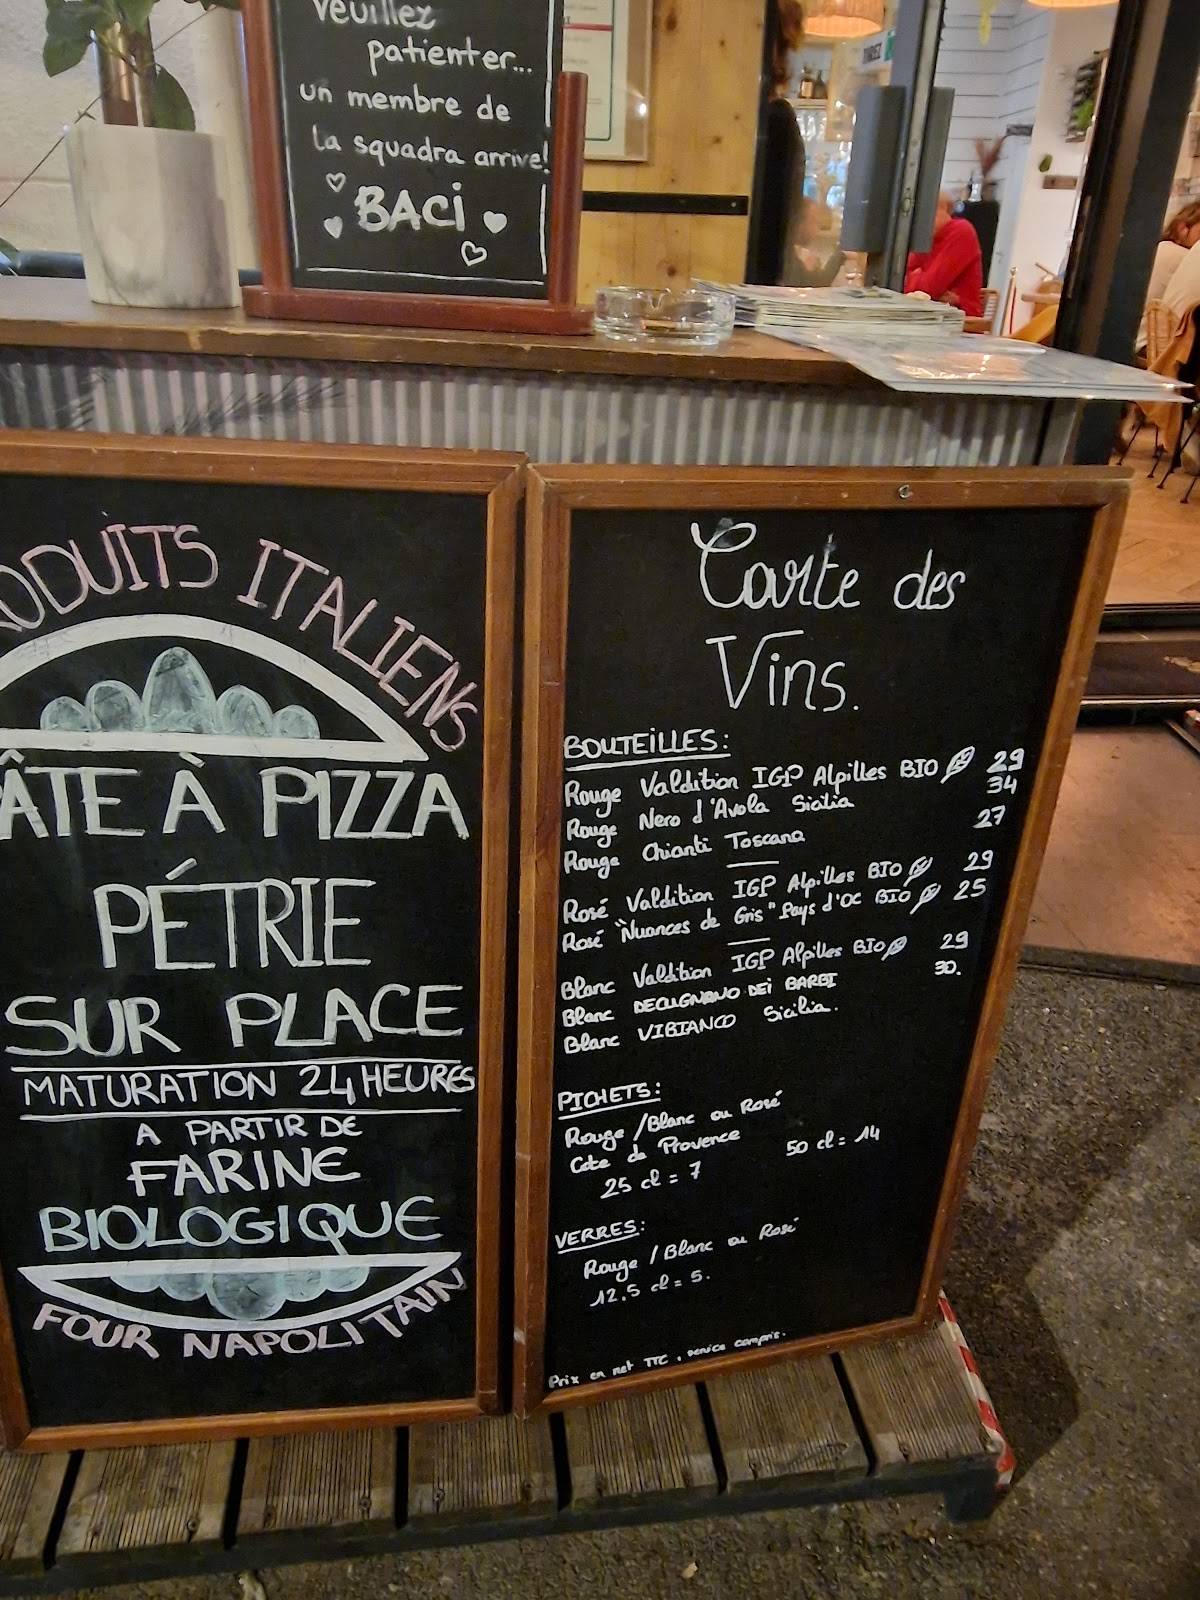 Veuillez
patienter...
un membre de
la squadra arrive!
BACi
ODUITS ITALIENS
ÂTE À PIZZA
PÉTRIE
SUR PLACE
MATURATION 24 HEURES
A PARTIR DE
FARINE
BIOLOGIQUE
FOUR NAPOLITAIN
Carte des
Vins.
BOUTEILLES:
Rouge Valdition IGP Alpilles BIO 29
Rouge Nero d'Avola Sicilia 34
Rouge Chianti Toscana 27
Rosé Valdition IGP Alpilles BIO 29
Rosé "Nuances de Gris" Pays d'OC BIO 25
Blanc Valdition IGP Alpilles BIO 29
Blanc DECUGNANO DEI BARBI 30.
Blanc VIBIANCO Sicilia.
PICHETS:
Rouge / Blanc ou Rosé
Cote de Provence
25 cl = 7 50 cl = 14
VERRES:
Rouge / Blanc ou Rosé
12.5 cl = 5.
Prix en net TTC, service compris.